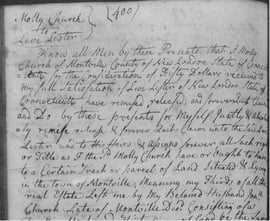 Molly Church (400)
to
Levi Lester
Know all Men by these Presents, that I Molly
Church of Montville County of New London State of Connec
ticut for the Consideration of Fifty Dollars received
to my full Satisfaction of Levi Lester of New London State of
Connecticut have remised released, and forever quit Claim
and Do by these presents for Myself
remise release & forever Quit Claim unto the said Levi
Lester unto His Heirs & Assigns forever all Such right
or Title as I the sd Molly Church have or Ought to have
to a Certain Tract or parcel of Land Situated & lying
in the town of Montville, Meaning my Thirds of all the
real Estate Left me by My Husband
Church Late of Montville Decd Consisting of